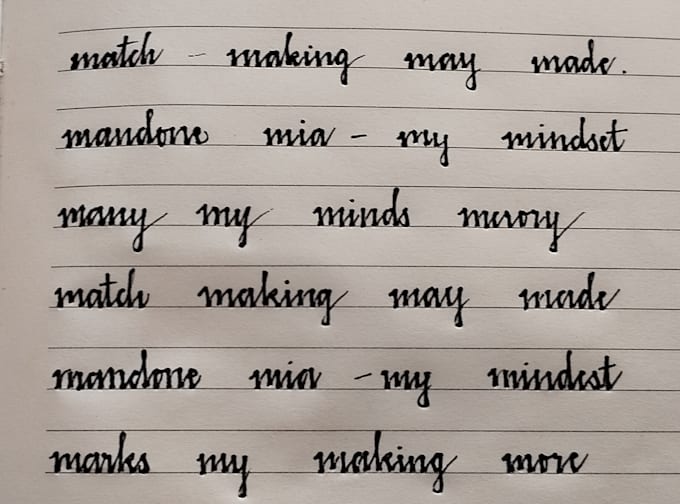 match - making may made.
mandone mia - my mindset
many my minds
match making may made
mandone mia - my mindest
marks my making more